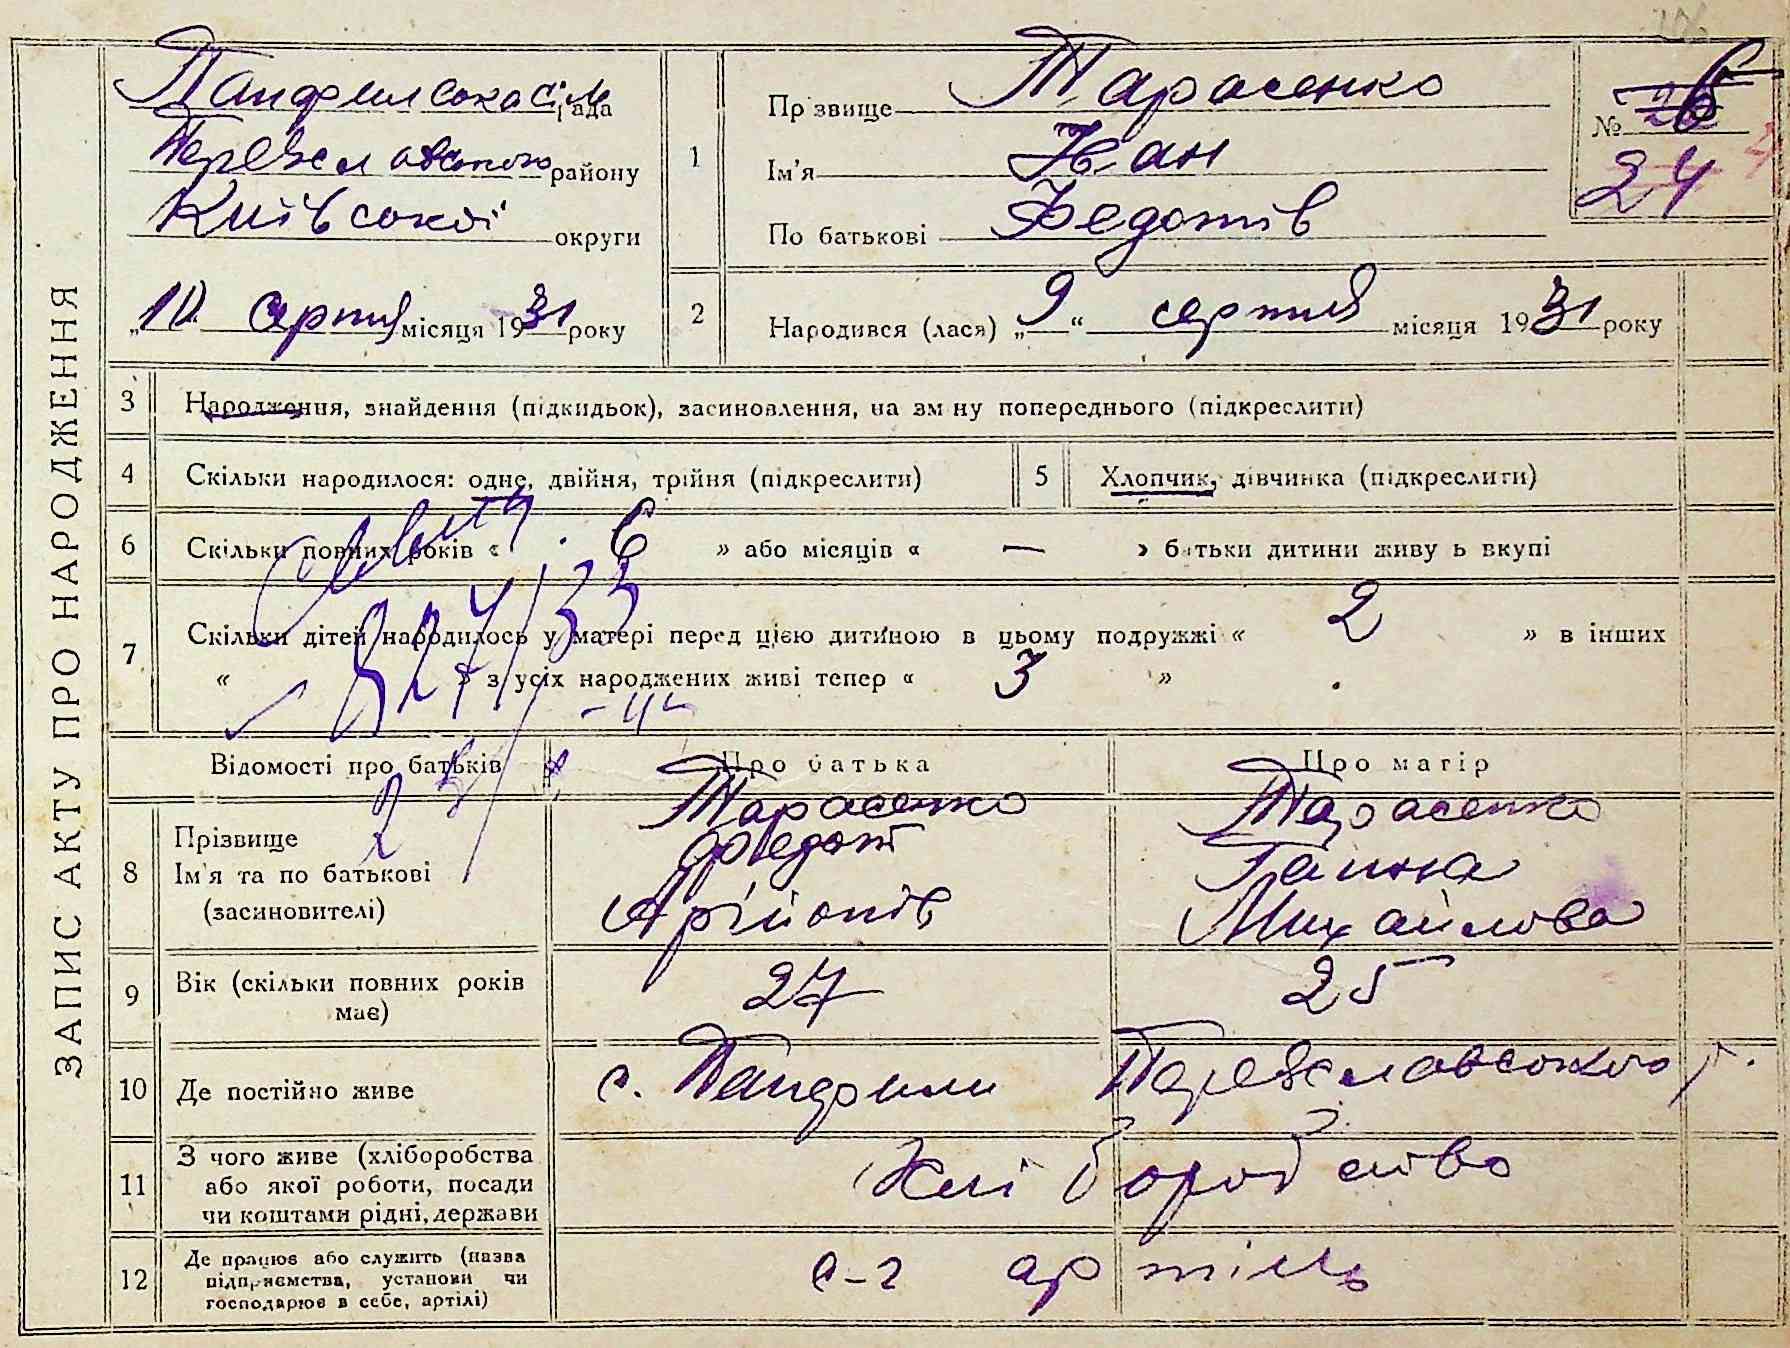 ЗАПИС АКТУ ПРО НАРОДЖЕННЯ
Панфилська сільрада
Переяславського району
Київської округи
„10 серпня місяця 1931 року
1
Прізвище Тарасенко
Ім'я Іван
По батькові Федотів
№ 6
24
2
Народився (лася) „9“ серпня місяця 1931 року
3 Народження, знайдення (підкидьок), засиновлення, на зміну попереднього (підкреслити)
4 Скільки народилося: одне, двійня, трійня (підкреслити)
5 Хлопчик, дівчинка (підкреслити)
6 Скільки повних років « 6 » або місяців « — » батьки дитини живуть вкупі
7 Скільки дітей народилось у матері перед цією дитиною в цьому подружжі « 2 » в інших
« » з усіх народжених живі тепер « 3 »
Відомості про батьків
Про батька
Про матір
8 Прізвище
Ім'я та по батькові
(засиновителі)
Тарасенко
Федот
Арійонів
Тарасенко
Ганна
Михайлова
9 Вік (скільки повних років
має)
27
25
10 Де постійно живе
с. Панфили Переяславського р.
11 З чого живе (хліборобства
або якої роботи, посади
чи коштами рідні, держави
Хліборобство
12 Де працює або служить (назва
підприємства, установи чи
господарює в себе, артілі)
с-г артіль